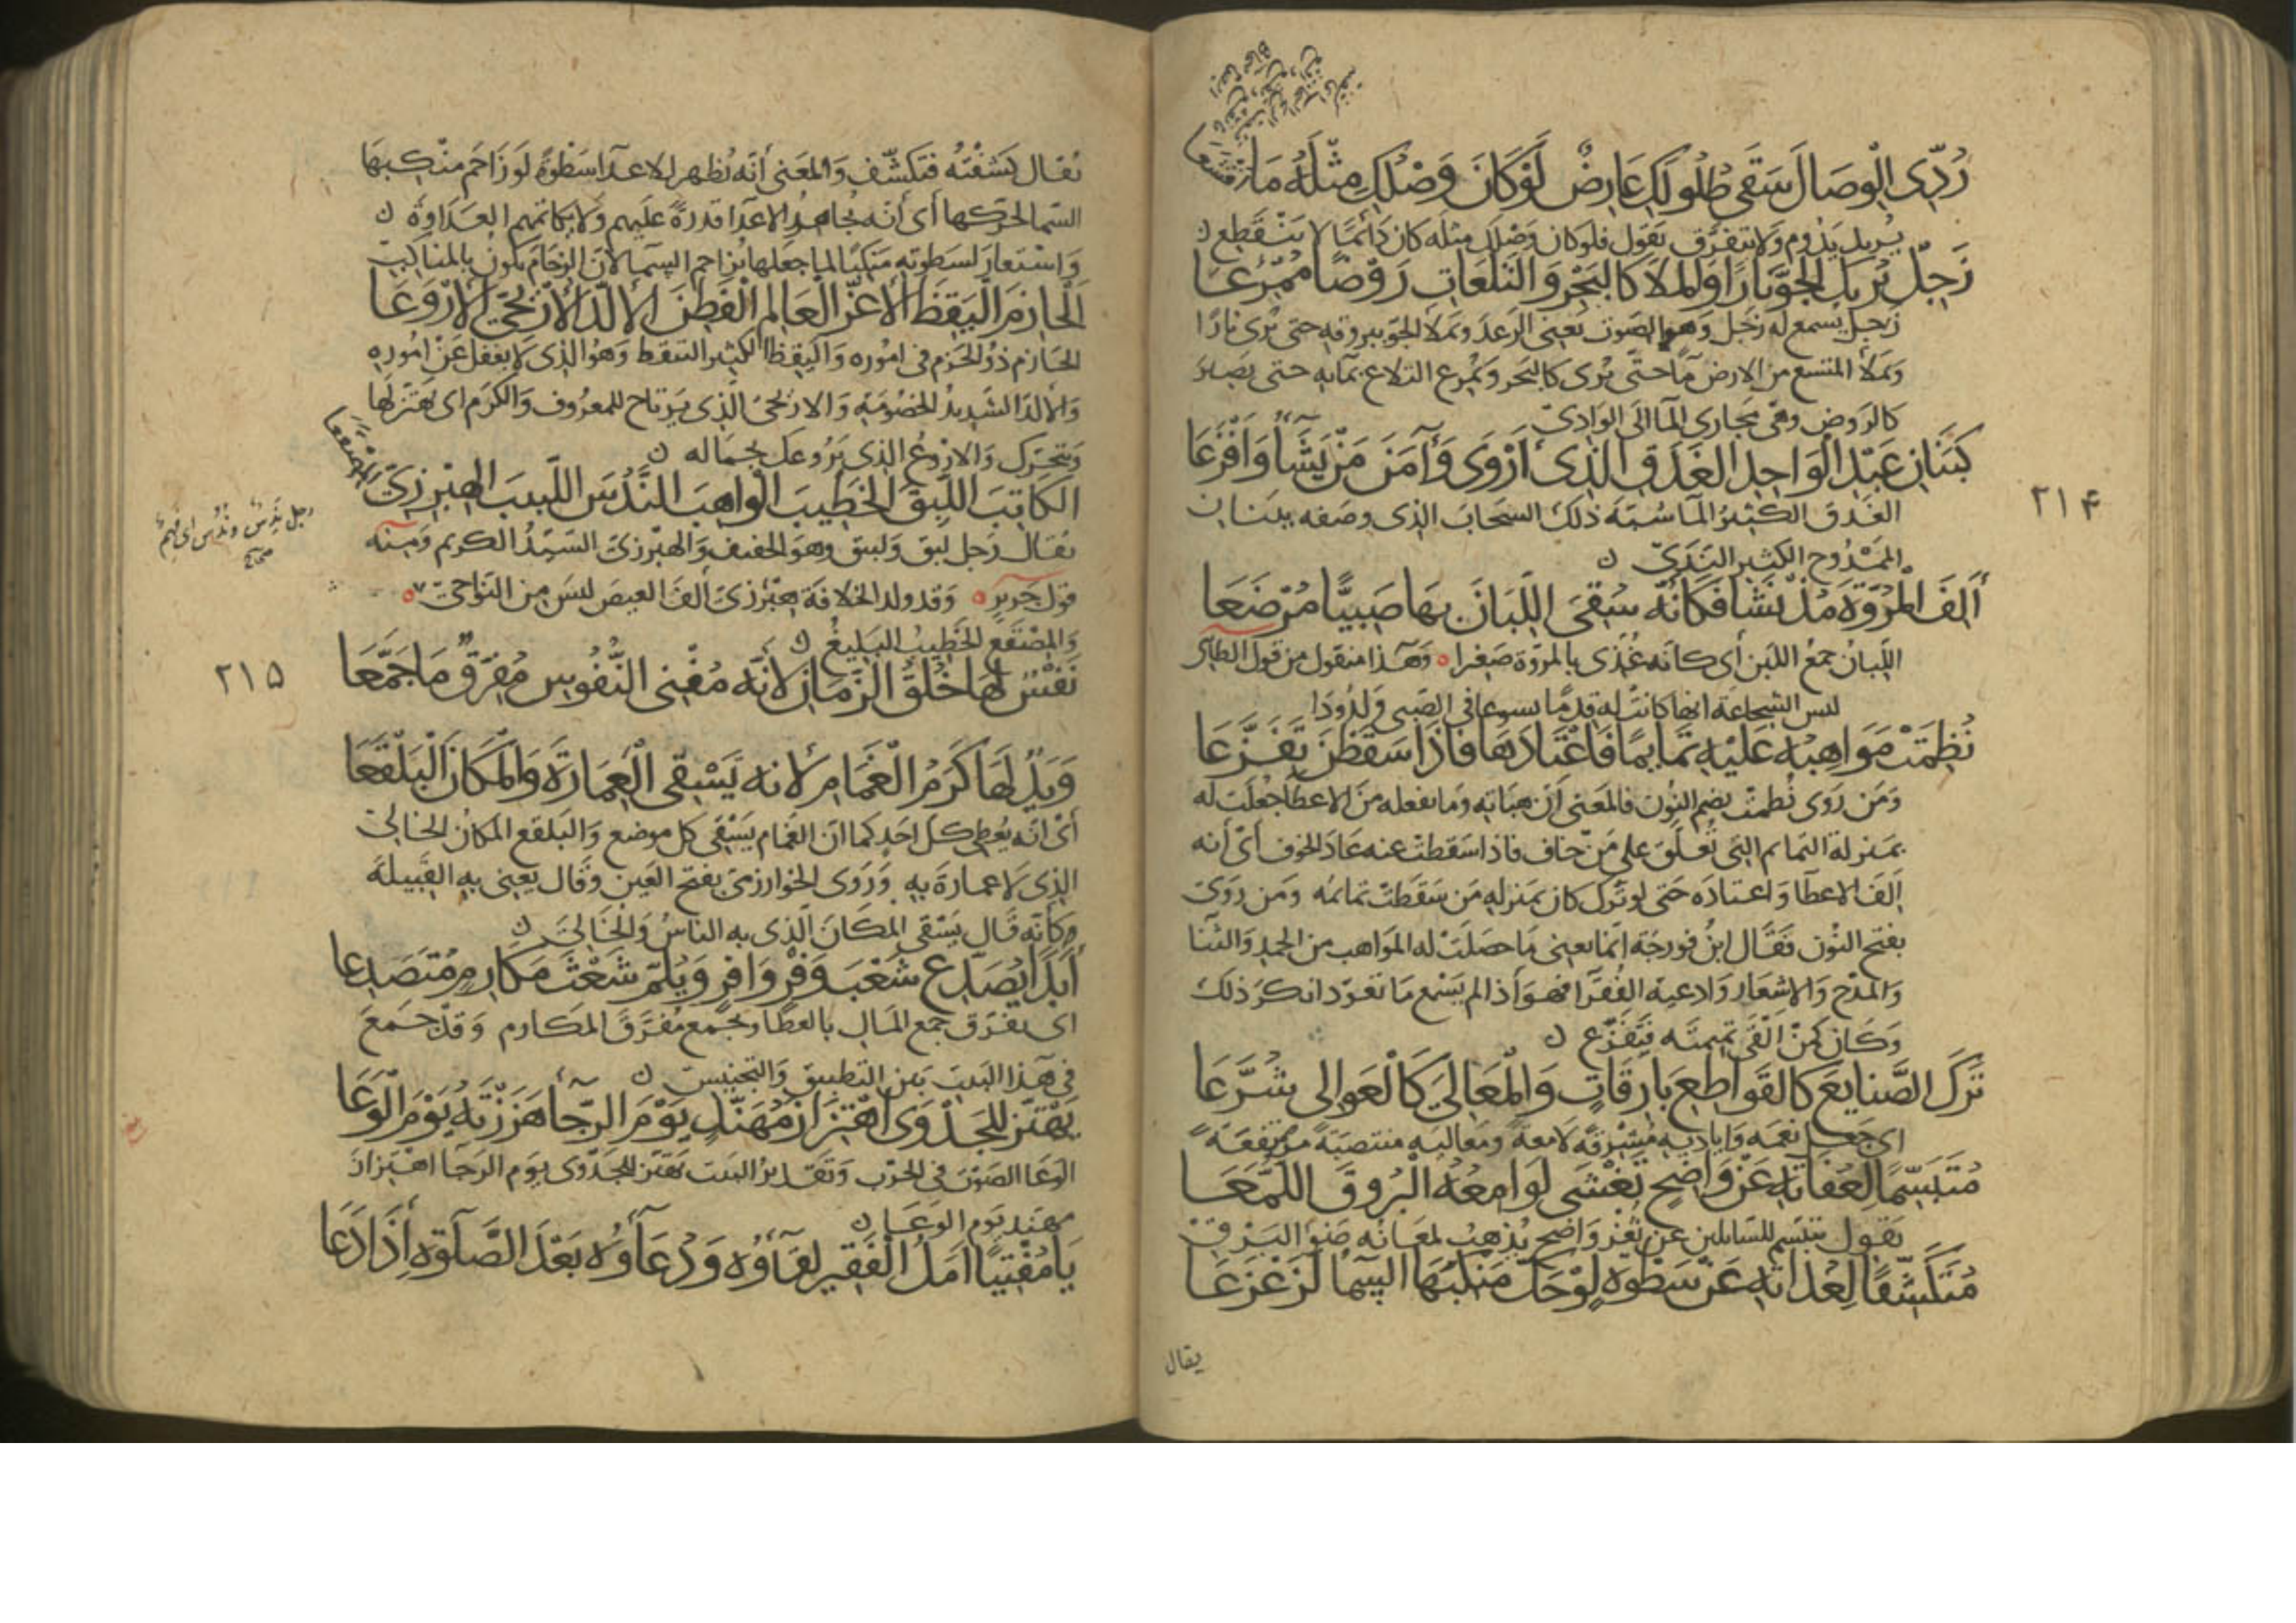 رُدِّي الْوِصَالَ سَقَى طُلُولَكِ عَارِضٌ لَوْ كَانَ وَصْلُكِ مِثْلَهُ مَا أَقْشَعَا
يريد يدوم ولا يتفرق يقول فلو كان وصلك مثله كان دائما لا ينقطع
زَجِلٌ يُرِيكَ الْجَوَّ نَارًا وَالْمَلَا كَالْبَحْرِ وَالتَّلَعَاتِ رَوْضًا مُمْرِعَا
زجل يسمع له زجل وهو الصوت يعني الرعد ويملأ الجو ببروقه حتى يرى نارا
ويملأ المتسع من الارض ماء حتى يرى كالبحر ويمرع التلاع بمائه حتى يصير
كالروض وهي مجاري الماء الى الوادي
كَبَنَانِ عَبْدِ الْوَاحِدِ الْغَدَقِ الَّذِي أَرْوَى وَآمَنَ مَنْ يَشَاءُ وَأَفْزَعَا
٢١٤
الغدق الكثير الماء شبه ذلك السحاب الذي وصفه ببنان
الممدوح الكثير الندى
أَلِفَ الْمُرُوَّةَ مُذْ نَشَا فَكَأَنَّهُ سُقِيَ اللِّبَانَ بِهَا صَبِيًّا مُرْضَعَا
اللبان جمع اللبن أي كانه غذي بالمروة صغيرا وهذا منقول من قول الطائي
لبس الشجاعة انها كانت له قدما نسوعا في الصبى ولدودا
نُظِمَتْ مَوَاهِبُهُ عَلَيْهِ تَمَايِمًا فَاعْتَادَهَا فَاذَا سَقَطْنَ تَفَزَّعَا
ومن روى نظمت بضم النون فالمعنى ان هباته وما نفعله من الاعطا جعلت له
بمنزلة التمائم التي تعلق على من خاف فاذا سقطت عنه عاد الخوف أي أنه
ألف الاعطا واعتاده حتى لو ترك كان بمنزله من سقطت تمائمه ومن روى
بفتح النون فقال ابن فورجة انما يعني ما حصلت له المواهب من الحمد والثنا
والمدح والاشعار وادعية الفقرا فهو اذا لم يسمع ما تعود انكر ذلك
وكان كمن القى تميمته فتفزع
تَرَكَ الصَّنَايِعَ كَالْقَوَاطِعِ بَارِقَاتٍ وَالْمَعَالِيَ كَالْعَوَالِي شُرَّعَا
اي جعل نعمه واياديه مشرقة لامعة ومعاليه منتصبة مرتفعة
مُتَبَسِّمًا لِعُفَاتِهِ عَنْ وَاضِحٍ تَغْشَى لَوَامِعُهُ الْبُرُوقَ اللُّمَّعَا
يقول يتبسم للسائلين عن ثغر واضح يذهب لمعانه ضوء البرق
مُتَكَشِّفًا لِعُدَاتِهِ عَنْ سَطْوَةٍ لَوْ حَكَّ مَنْكِبُهَا السَّمَاءَ لَزَعْزَعَا
يقال
يقال كشفته فتكشف والمعنى أنه يظهر للاعداء سطوة لو زاحم منكبها
السما لحركها أي أنه يجاهر الاعدا قدرة عليهم ولا يكاتمهم العداوة
واستعار لسطوته منكبا لما جعلها تزاحم السما لان الزحام يكون بالمناكب
الْحَازِمَ الْيَقِظَ الْأَغَرَّ الْعَالِمَ الْفَطِنَ الْأَلَدَّ الْأَرْيَحِيَّ الْأَرْوَعَا
الحازم ذو الحزم في اموره واليقظ الكثير التيقظ وهو الذي لا يغفل عن اموره
والألد الشديد الخصومة والاريحي الذي يرتاح للمعروف والكرم اي يهتز لها
ويتحرك والاروع الذي يروعك بجماله
الْكَاتِبَ اللَّبِقَ الْخَطِيبَ الْوَاهِبَ النَّدُسَ اللَّبِيبَ الْهِبْرِزِيَّ الْمِصْقَعَا
رجل ندس وندس اي فهم
صحاح
يقال رجل لبق ولبيق وهو الخفيف والهبرزي السيد الكريم ومنه
قول جرير وقد ولد الخلافة هبرزي ألف العيص ليس من النواحي
والمصقع الخطيب البليغ
نَفْسٌ لَهَا خُلُقُ الزَّمَانِ لِأَنَّهُ مُفْنِي النُّفُوسِ مُفَرِّقٌ مَا جَمَّعَا
٢١٥
وَيَدٌ لَهَا كَرَمُ الْغَمَامِ لِأَنَّهُ يَسْقِي الْعِمَارَةَ وَالْمَكَانَ الْبَلْقَعَا
أي انه يعطي كل احد كما ان الغمام يسقي كل موضع والبلقع المكان الخالي
الذي لا عمارة به وروى الخوارزمي بفتح العين وقال يعني به القبيلة
وكأنه قال يسقي المكان الذي به الناس والخالي
أَبَدًا يُصَدِّعُ شَعْبَ وَفْرٍ وَافِرٍ وَيَلُمُّ شَعْثَ مَكَارِمٍ مُتَصَدِّعَا
اى يفرق جمع المال بالعطا ويجمع مفرق المكارم وقد جمع
في هذا البيت بين التطبيق والتجنيس
يَهْتَزُّ لِلْجَدْوَى اهْتِزَازَ مُهَنَّدٍ يَوْمَ الرَّجَاءِ هَزَزْتَهُ يَوْمَ الْوَعَا
الوعا الصوت في الحرب وتقدير البيت يهتز للجدوى يوم الرجا اهتزاز
مهند يوم الوعا
يَا مُغْنِيًا أَمَلَ الْفَقِيرِ لِقَاؤُهُ وَدُعَاؤُهُ بَعْدَ الصَّلَوةِ إِذَا دَعَا